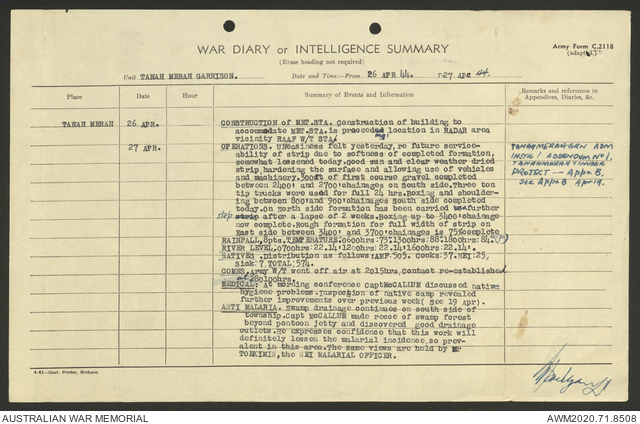 WAR DIARY or INTELLIGENCE SUMMARY
Army Form C.2118
(adapted.)
(Erase heading not required)
Unit TANAH MERAH GARRISON. Date and Time—From 26 APR 44. 27 APR 44.
Place Date Hour Summary of Events and Information Remarks and references to Appendices, Diaries, &c.
TANAH MERAH 26 APR. CONSTRUCTION of MET.STA. Construction of building to
accommodate MET.STA.is proceeding location in RADAR area
vicinity RAAF W/T STA.
27 APR. OPERATIONS. Uneasiness felt yesterday,re future service-
ability of strip due to softness of completed formation,
somewhat lessened today.Good sun and clear weather dried
strip,hardening the surface and allowing use of vehicles
and machinery.300ft of first course gravel completed
between 2400' and 2700'chainages on South side.Three ton
tip trucks were used for full 24 hrs.Boxing and shoulder-
ing between 800'and 900'chainages South side completed
today.On north side formation has been carried further
strip after a lapse of 2 weeks.Boxing up to 3400'chainage
now complete.Rough formation for full width of strip on
East side between 3400' and 3700'chainages is 75%complete
RAINFALL,8pts.TEMPERATURE.0600hrs:73.1300hrs:88.1800hrs:84.(F)
RIVER LEVEL,0700hrs:22.14:1200hrs:22.14:1600hrs:22.14.
NATIVES .Distribution as follows:AMF.505. Cooks:37.NEI:25,
Sick:7.TOTAL:574.
COMNS.Army W/T went off air at 2015hrs.Contact re-established
at 280100hrs.
MEDICAL: At morning conference CaptMcCALLUM discussed native
hygiene problems.Inspection of native camp revealed
further improvements over previous week( See 19 Apr).
ANTI MALARIA. Swamp drainage continues on south side of
township.Capt McCALLUM made recce of swamp forest
beyond pontoon jetty and discovered good drainage
outlets.He expresses confidence that this work will
definitely lessen the malarial incidence,so prev-
alent in this area.The same views are held by Mr
TOEKIMIN,the NEI MALARIAL OFFICER.
TANAHMERAH GRN ADM
INSTN 1 ADDENDUM No1,
TANAHMERAH TIMBER
PROJECT — Appx B.
see Appx B Apr 19.
4-43—Govt. Printer, Brisbane.
AUSTRALIAN WAR MEMORIAL AWM2020.71.8508